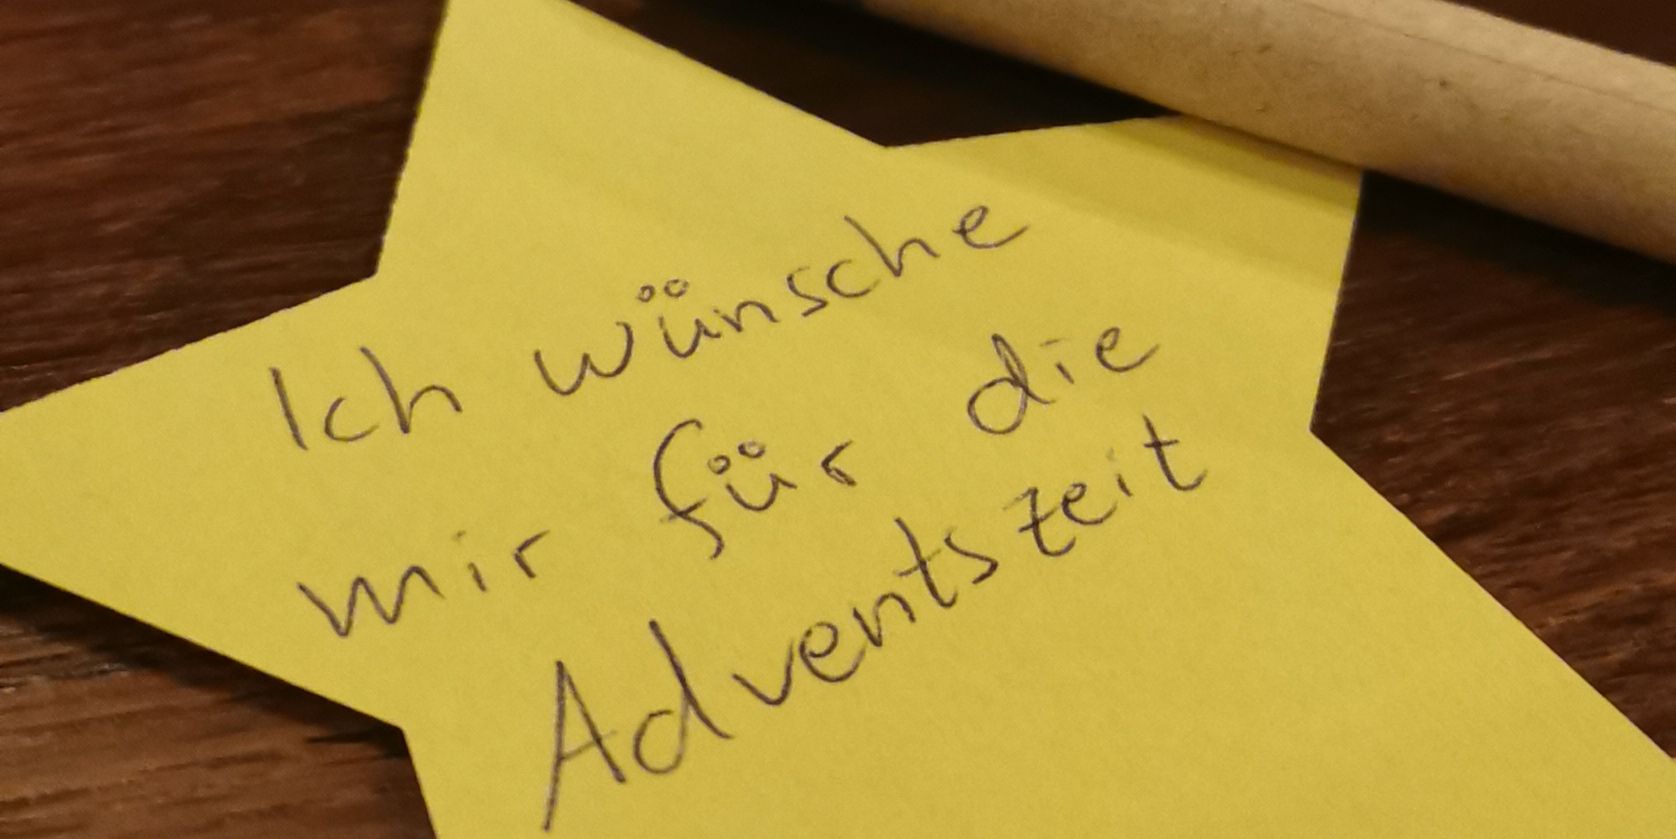 Ich wünsche
mir für die
Adventszeit